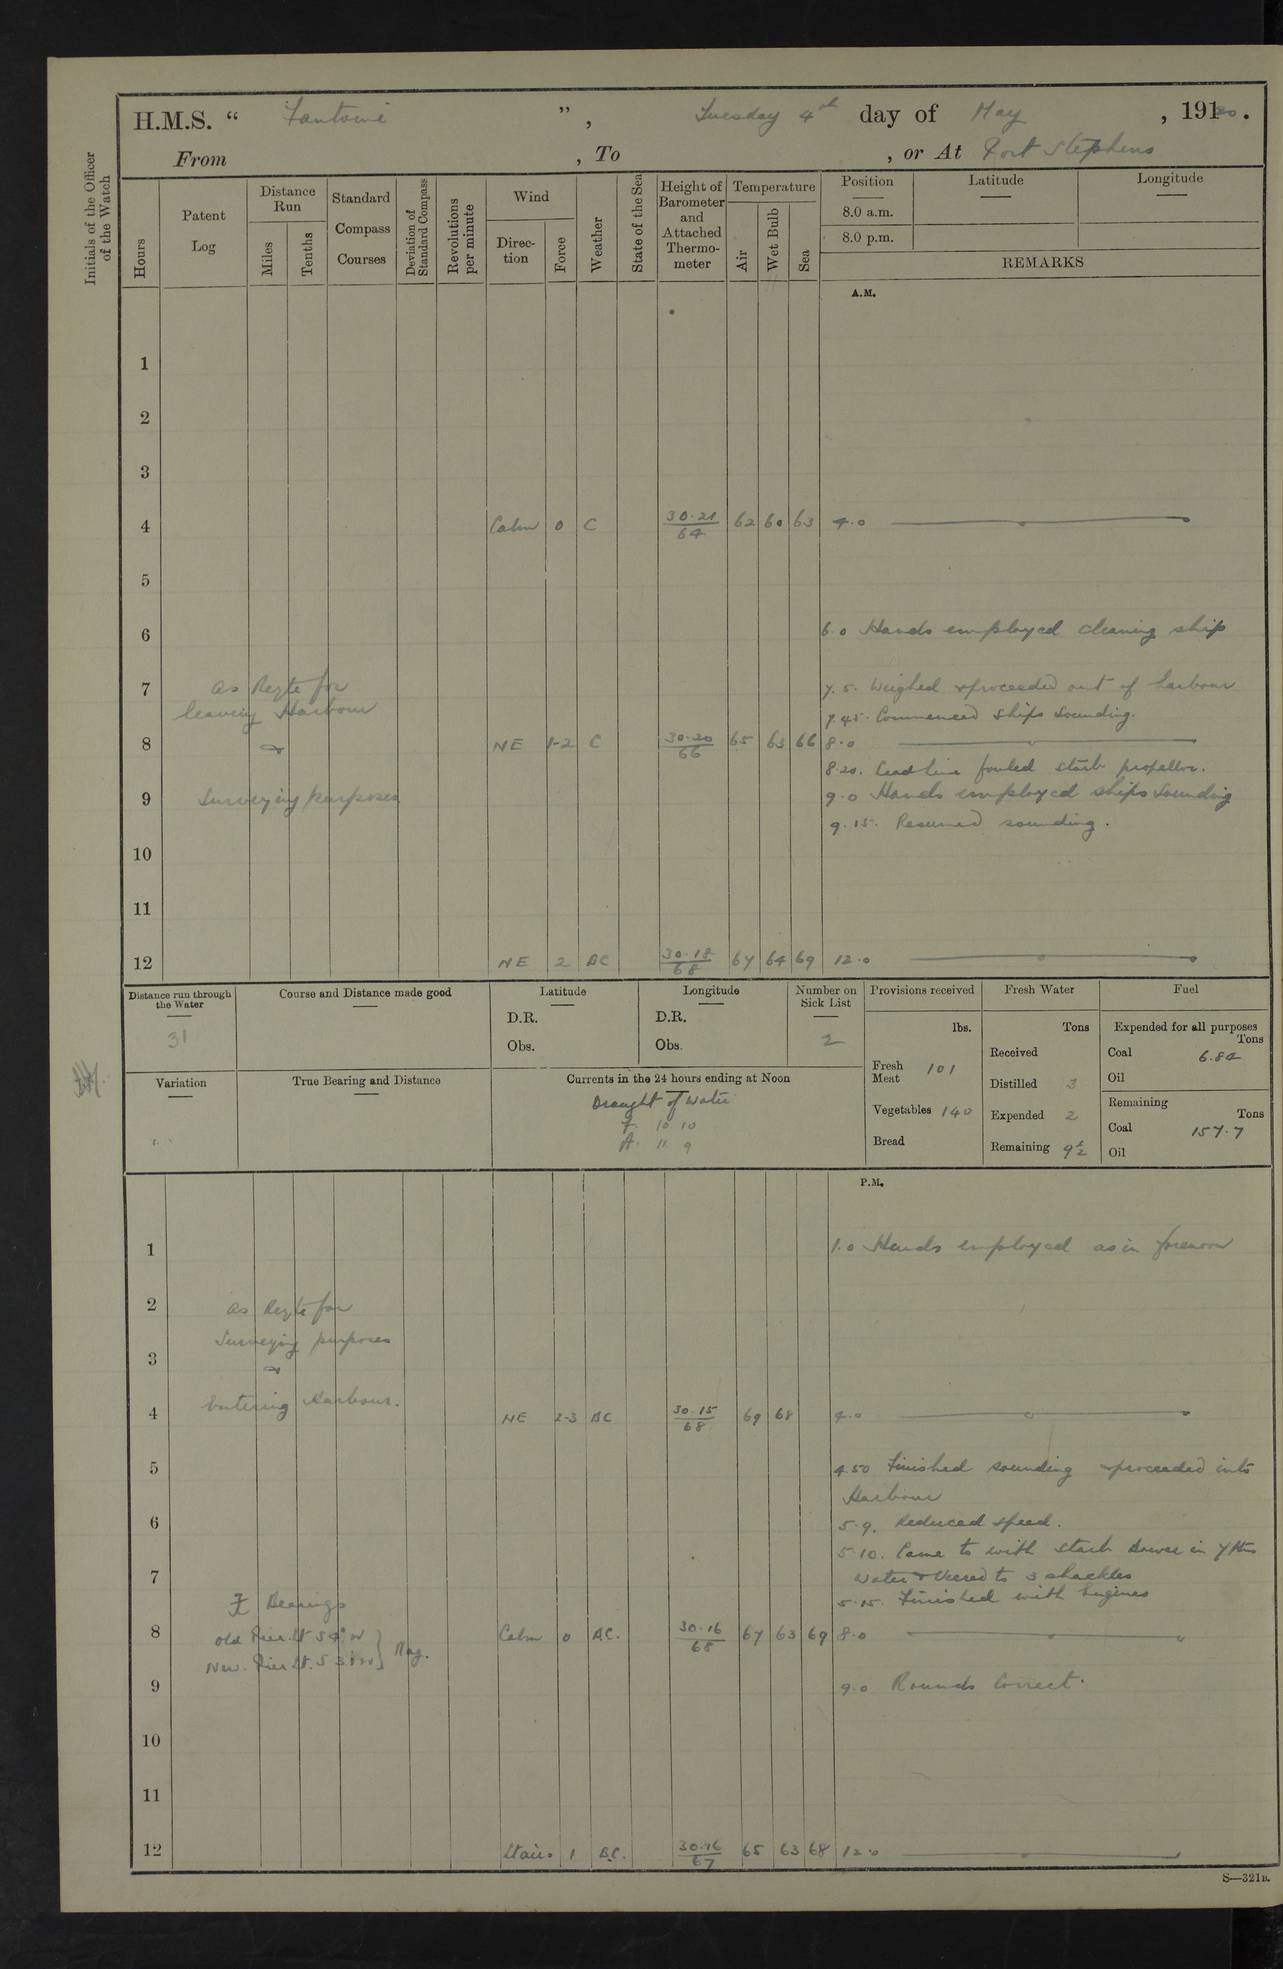 H.M.S. “ Fantome ”, Tuesday 4th day of May, 1920.
From , To , or At Port Stephens
Initials of the Officer of the Watch
Hours
Patent Log
Distance Run
Miles
Tenths
Standard Compass Courses
Deviation of Standard Compass
Revolutions per minute
Wind
Direction
Force
Weather
State of the Sea
Height of Barometer and Attached Thermometer
Temperature
Air
Wet Bulb
Sea
Position
Latitude
Longitude
8.0 a.m.
8.0 p.m.
REMARKS
A.M.
1
2
3
4 Calm 0 C 30.21/64 62 60 63 4.0
5
6 6.0 Hands employed cleaning ship
7 As Reqte for 7.5. Weighed & proceeded out of harbour
leaving Harbour 7.45. Commenced ships sounding.
8 & NE 1-2 C 30.20/66 65 63 66 8.0
8.20. Lead line fouled starb propellor.
9 Surveying purposes 9.0 Hands employed ships sounding
9.15. Resumed sounding.
10
11
12 NE 2 BC 30.18/68 67 64 69 12.0
Distance run through the Water
31
Course and Distance made good
Latitude
D.R.
Obs.
Longitude
D.R.
Obs.
Number on Sick List
2
Provisions received
lbs.
Fresh Meat 101
Vegetables 140
Bread
Fresh Water
Tons
Received
Distilled 3
Expended 2
Remaining 9½
Fuel
Expended for all purposes
Tons
Coal 6.82
Oil
Remaining
Tons
Coal 157.7
Oil
Variation
True Bearing and Distance
Currents in the 24 hours ending at Noon
Draught of Water
F. 10. 10
A. 11. 9
P.M.
1 1.0 Hands employed as in forenoon
2 As Reqte for
Surveying purposes
3 &
Entering Harbour.
4 NE 2-3 BC 30.15/68 69 68 4.0
5 4.50 Finished sounding & proceeded into
Harbour
6 5.9. Reduced speed.
5.10. Came to with starb bower in 7 fms
7 water & veered to 3 shackles
5.15. Finished with Engines
Bearings
8 Old Pier Lt S 4° W Calm 0 BC. 30.16/68 67 63 69 8.0
New. Pier Lt. Mag.
9 9.0 Rounds Correct.
10
11
12 1 BC. 30.16/67 65 63 68 12.0
S—321B.